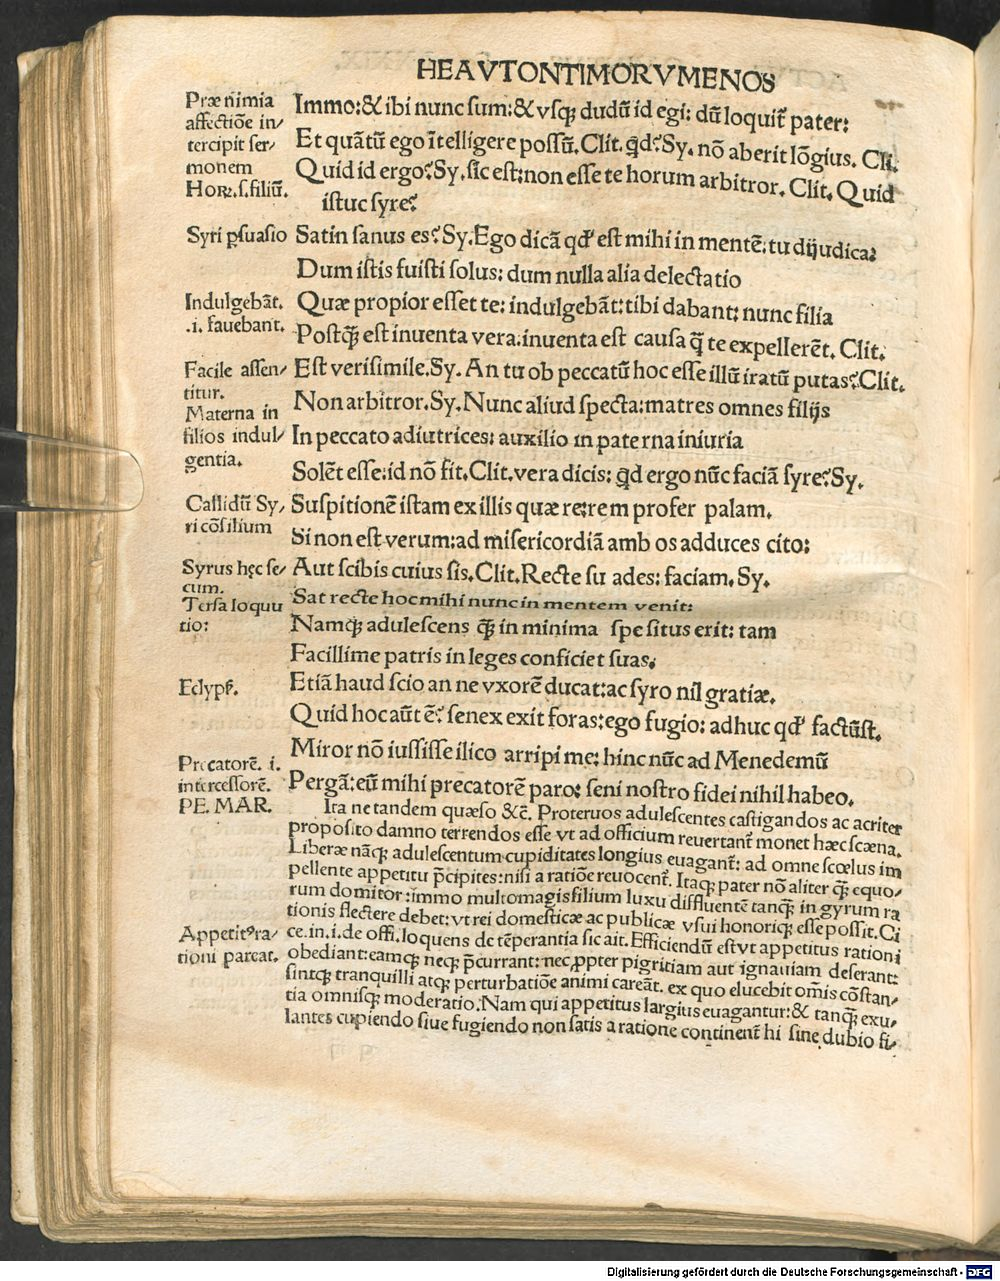 HEAVTONTIMORVMENOS
Præ nimia
affectiōe in/
tercipit ser/
monem
Hoꝝ.ſ.filiū.
Immo:& ibi nunc sum:& vſqꝫ dudū id egi: dū loquit̄ pater:
Et quātū ego ītelligere possū. Clit. qd? Sy. nō aberit lōgius. Cli.
Quid id ergo? Sy. sic est:non esse te horum arbitror. Clit. Quid
istuc syre?
Syri ꝑsuasio
Satin sanus es? Sy. Ego dicā qd' est mihi in mentē: tu dijudica:
Dum istis fuisti solus: dum nulla alia delectatio
Indulgebāt.
.i. fauebant.
Quæ propior esset te: indulgebāt: tibi dabant: nunc filia
Postqꝫ̄ est inuenta vera: inuenta est causa q̄ te expellerēt. Clit.
Facile assen/
titur.
Est verisimile. Sy. An tu ob peccatū hoc esse illū iratū putas? Clit.
Materna in
filios indul/
gentia.
Non arbitror. Sy. Nunc aliud specta: matres omnes filijs
In peccato adiutrices: auxilio in paterna iniuria
Solēt esse: id nō fit. Clit. vera dicis: qd ergo nūc faciā syre? Sy.
Callidū Sy/
ri cōsilium
Suspitionē istam ex illis quære: rem profer palam.
Si non est verum: ad misericordiā ambos adduces cito:
Syrus hęc se/
cum.
Aut scibis cuius sis. Clit. Recte suades: faciam. Sy.
Tersa loquu
tio:
Sat recte hoc mihi nunc in mentem venit:
Namqꝫ adulescens qꝫ̄ in minima spe situs erit: tam
Facillime patris in leges conficiet suas.
Eclypſ.
Etiā haud scio an ne vxorē ducat: ac syro nil gratiæ.
Quid hoc aūt ē? senex exit foras: ego fugio: adhuc qd' factūst.
Miror nō iussisse ilico arripi me: hinc nūc ad Menedemū
Precatorē. i.
intercessorē.
Pergā: eū mihi precatorē paro: seni nostro fidei nihil habeo.
PE. MAR.
Ita ne tandem quæso &c̄. Proteruos adulescentes castigandos ac acriter
proposito damno terrendos esse vt ad officium reuertant̄ monet hæc scæna.
Liberæ nāqꝫ adulescentum cupiditates longius euagant̄: ad omne scœlus im
pellente appetitu p̄cipites: nisi a ratiōe reuocent̄. Itaqꝫ pater nō aliter qꝫ̄ equo/
rum domitor: immo multomagis filium luxu diffluentē tanqꝫ̄ in gyrum ra
tionis flectere debet: vt rei domesticæ ac publicæ vsui honoriqꝫ esse possit. Ci
Appetitꝰ ra/
tioni pareat.
ce. in. i. de offi. loquens de tēperantia sic ait. Efficiendū est vt appetitus rationi
obediant: eamqꝫ neqꝫ p̄currant: nec ꝓpter pigritiam aut ignauiam deserant:
sintqꝫ tranquilli atqꝫ perturbatiōe animi careāt. ex quo elucebit om̄is cōstan/
tia omnisqꝫ moderatio. Nam qui appetitus largius euagantur: & tanqꝫ̄ exu/
lantes cupiendo siue fugiendo non satis a ratione continent̄ hi sine dubio fi/
Digitalisierung gefördert durch die Deutsche Forschungsgemeinschaft - DFG